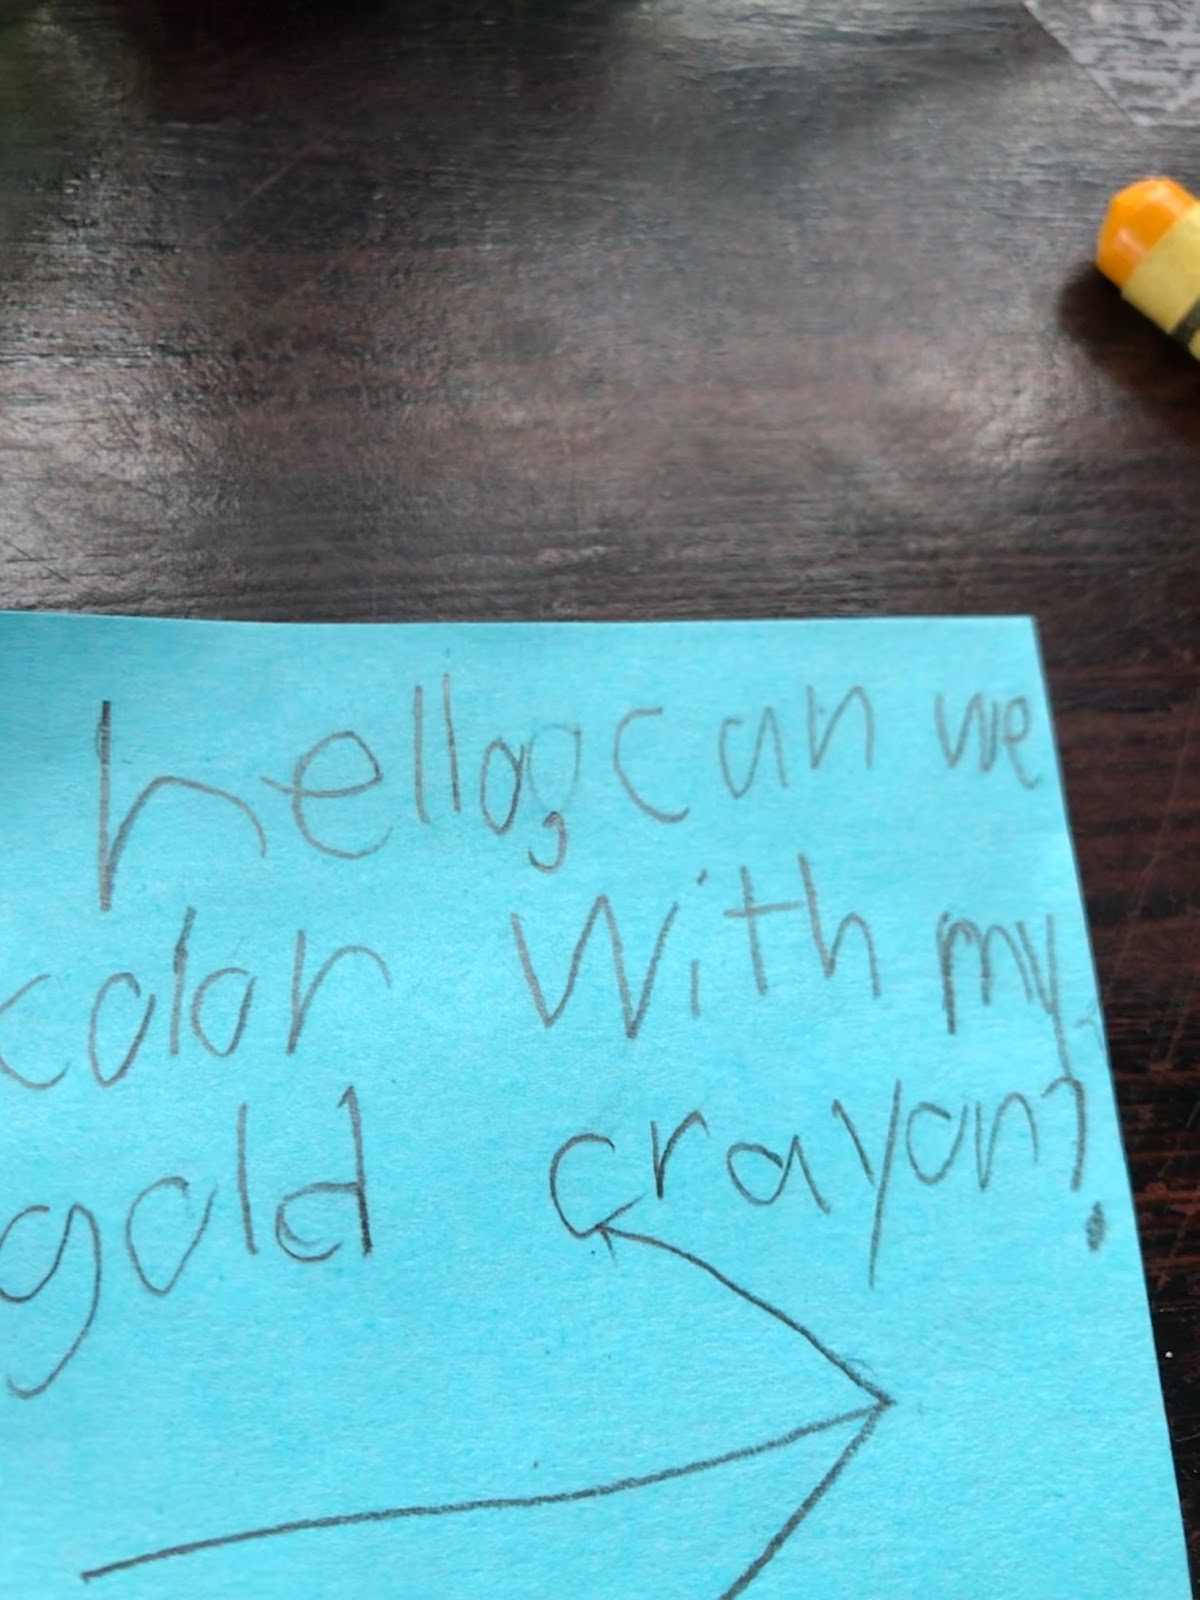 hello, can we
color with my
gold crayon?